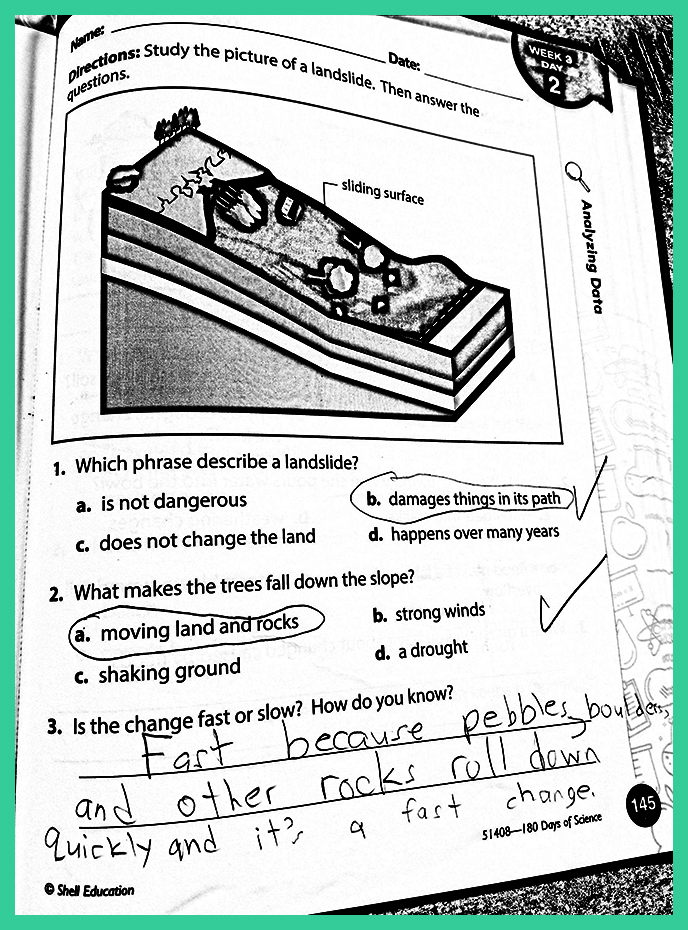 Name:
Date:
WEEK 3
DAY
2
Directions: Study the picture of a landslide. Then answer the
questions.
sliding surface
Analyzing Data
1. Which phrase describe a landslide?
a. is not dangerous
b. damages things in its path
c. does not change the land
d. happens over many years
2. What makes the trees fall down the slope?
a. moving land and rocks
b. strong winds
c. shaking ground
d. a drought
3. Is the change fast or slow? How do you know?
Fast because pebbles, boulders,
and other rocks roll down
quickly and it's a fast change.
145
51408—180 Days of Science
© Shell Education